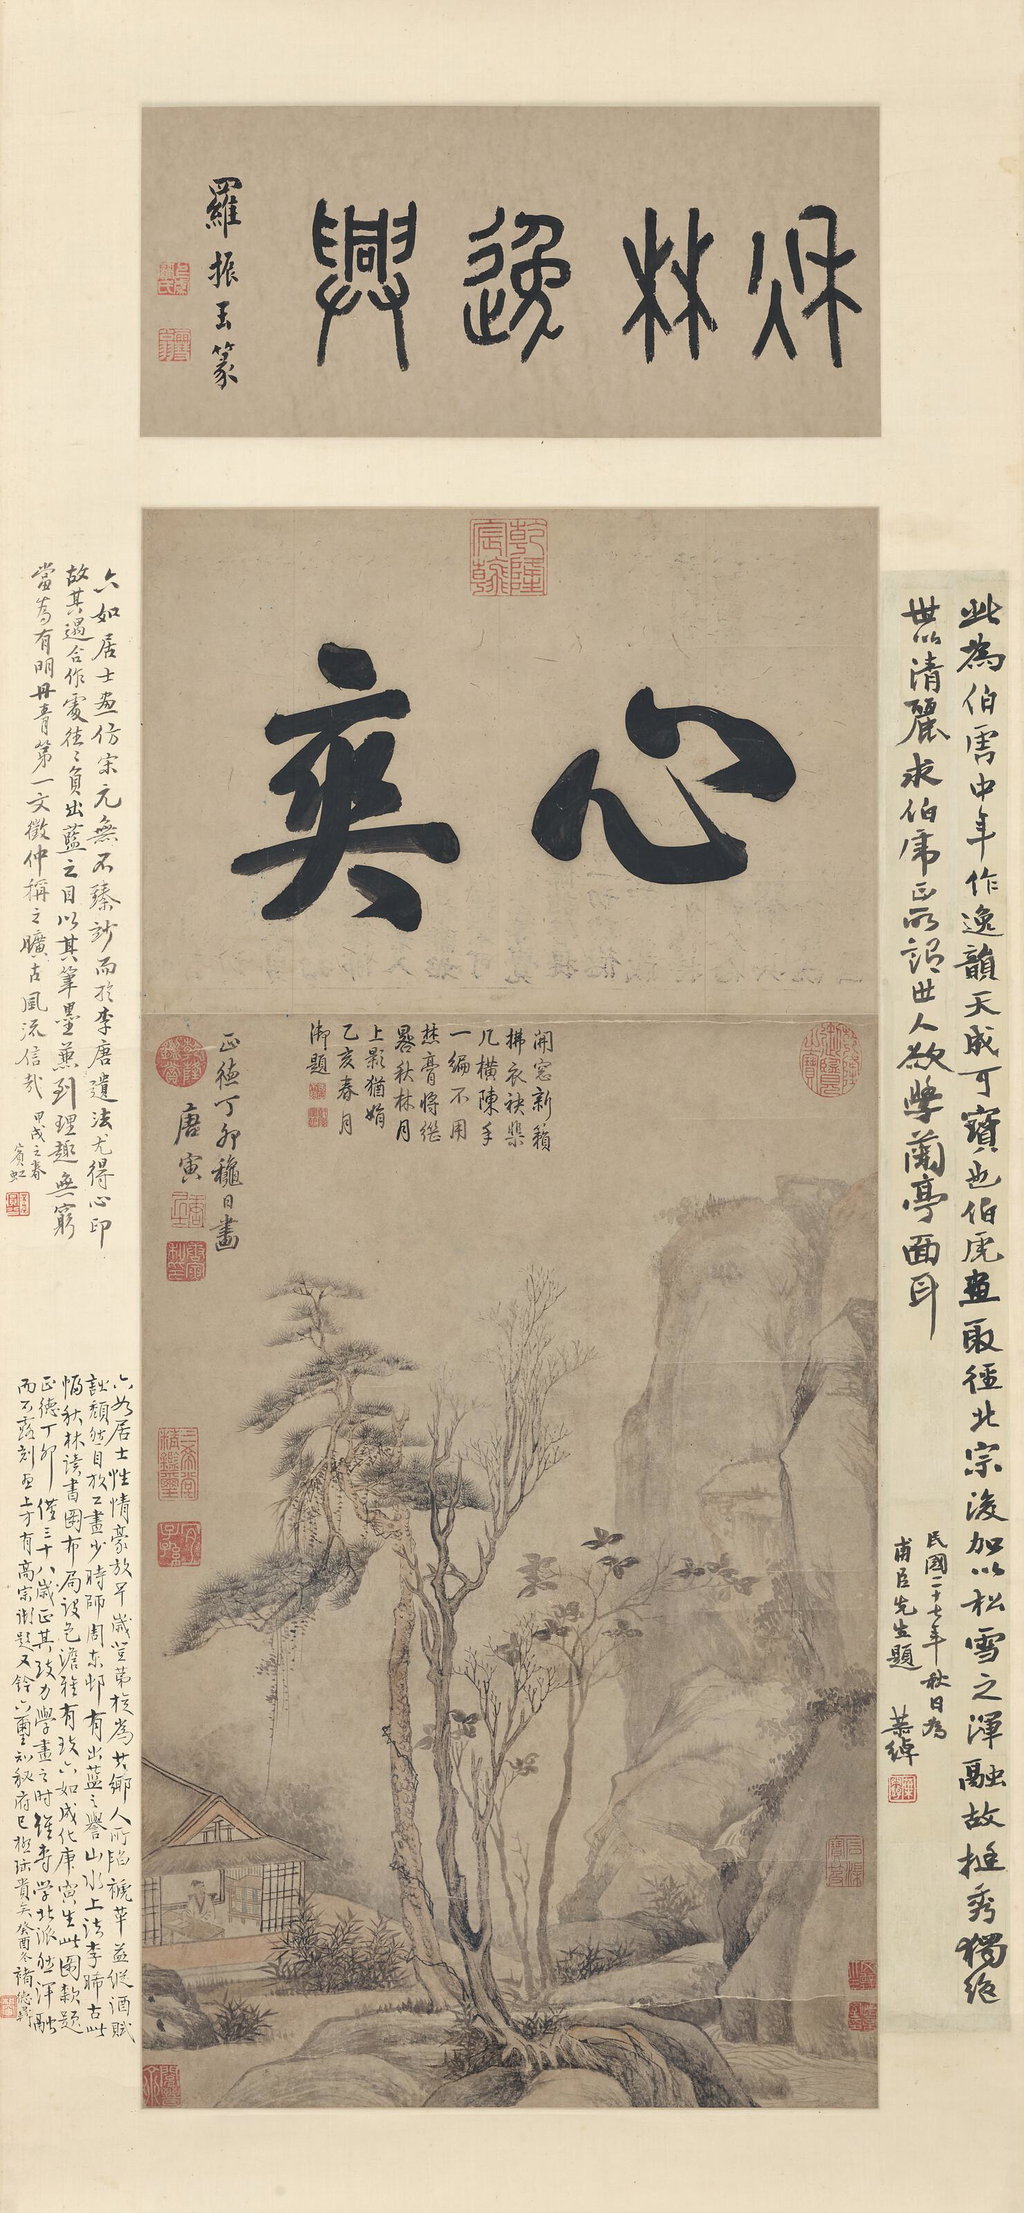 秋林逸興
羅振玉篆
乾隆宸翰
心爽
開窓新籟
拂衣袂棐
几橫陳手
一編不用
焚膏將繼
晷秋林月
上影猶娟
乙亥春月
御題
正德丁卯穐日畫
唐寅
此為伯虎中年作逸韻天成可寶也伯虎畫取徑北宗後加以松雪之渾融故挺秀獨絕
世以清麗求伯虎正所謂世人欲學蘭亭面耳
民國二十七年秋日為
甫臣先生題
葉綽
六如居士畫仿宋元無不臻妙而於李唐遺法尤得心印
故其遇合作處往往負出藍之目以其筆墨兼到理趣無窮
當為有明丹青第一文徵仲稱之曠古風流信哉
甲戌之春
賓虹
六如居士性情豪放早歲登第核為其鄉人所陷褫革益縱酒賦
詩頹然自放工畫少時師周東邨有出藍之譽山水上法李晞古此
幅秋林讀書圖布局設色澹雅有致六如成化庚寅生此圖款題
正德丁卯僅三十八歲正其致力學畫之時雖專學北派然渾融
而不露刻畫上方有高宗御題又鈐六璽知秘府已極珍貴矣癸酉冬褚德彝